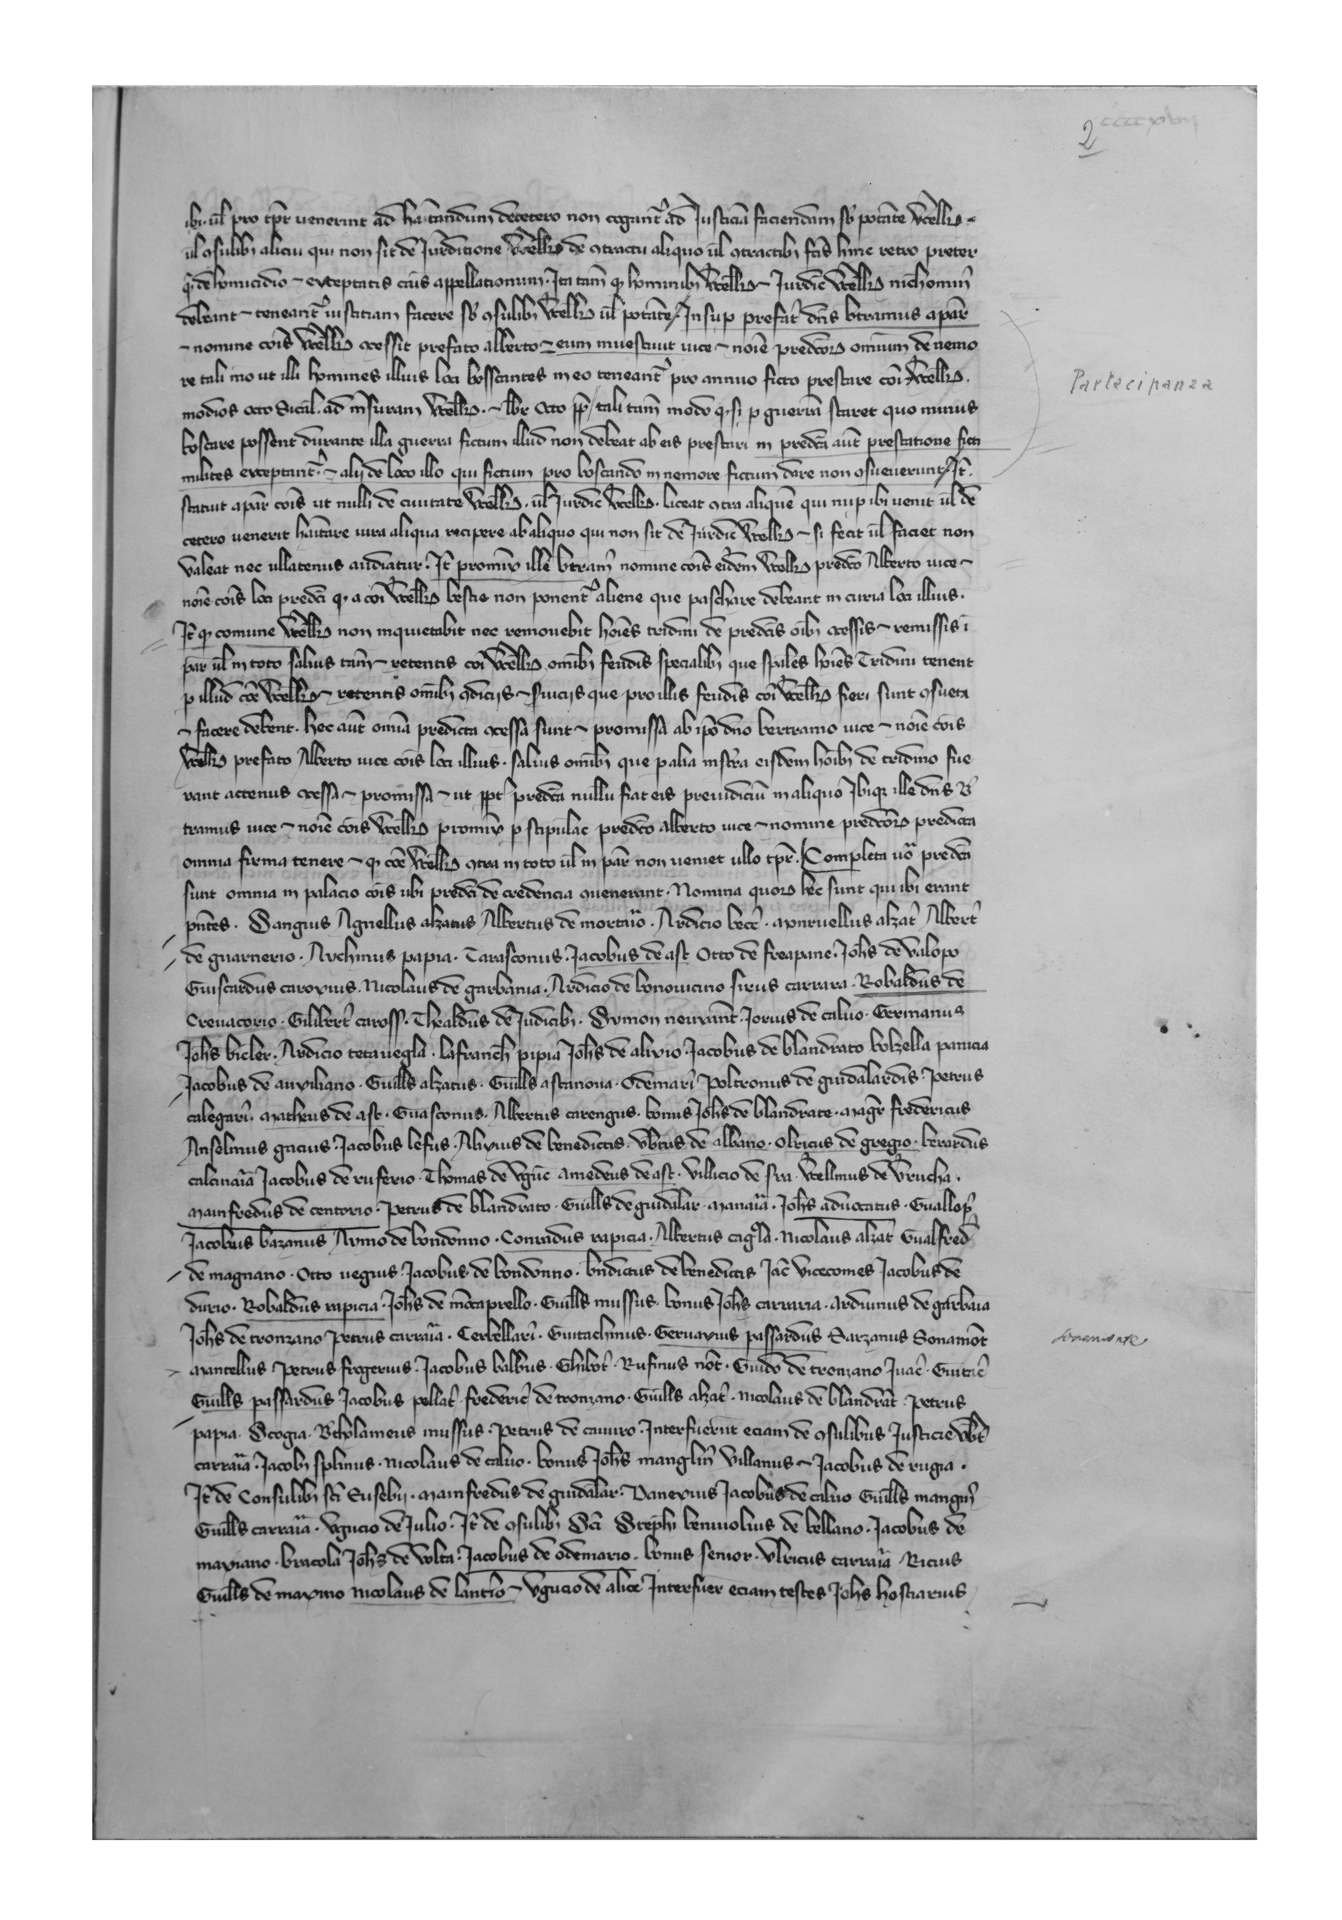 2 ccccxvij
ibi. ul̄ pro tp̄r uenerint ad hāitandum decetero non cogant᷑ ad Justiciā faciendam sb potāte v̄cellꝝ.
ul̄ ꝯsulibȝ alicui qui non sit de Jurditione v̄cellꝝ de ꝯtractu aliquo ul̄ ꝯtractibȝ fc̄is hinc retro preter
q̄ de homicidio ⁊ exceptatis cāis appellationum. Ita tam̄ qꝫ hominibȝ v̄cellꝝ ⁊ Jurdic̄ v̄cellꝝ nichomin̄
debeant ⁊ teneant᷑ iusticiam facere sb ꝯsulibȝ v̄cellꝝ ul̄ potāte / Insup prefat᷑ dn̄s b̄tramus a par̄
⁊ nomine cōis v̄cellꝝ ꝯcessit prefato alberto ⁊ eum inuestiuit uice ⁊ noīe predc̄oꝝ omnium de nemo
re tali mō ut illi homines illius loci boscantes in eo teneant᷑ pro annuo ficto prestare cōi v̄cellꝝ.
modios octo Sical̄. ad m̄suram v̄cellꝝ. ⁊ lbr̄ octo pp̄ / tali tam̄ modo qꝫ si p guerrā staret quo minus
boscare possent durante illa guerra fictum illud non debeat ab eis prestari in predc̄a aut̄ prestatione ficti
milites exceptant᷑. ⁊ alij de loco illo qui fictum pro boscando in nemore fictum dare non ꝯsueuerunt / It̄.
statuit a par̄ cōis ut nulli de ciuitate v̄cellꝝ. ul̄ Jurdic̄ v̄cellꝝ. liceat ꝯtra aliquē qui nup ibi uenit ul̄ de
cetero uenerit hāitare iura aliqua recipere ab aliquo qui non sit de Jurdic̄ v̄cellꝝ ⁊ si fecit ul̄ faciet non
valeat nec ullatenus audiatur. It̄ promix̄ ille b̄tram᷑ nomine cōis eiusdem v̄cellꝝ predc̄o Alberto uice ⁊
noīe cōis loci predc̄i qꝫ a cōi v̄cellꝝ bestie non ponent᷑ aliene que paschare debeant in curia loci illius.
It̄ qꝫ comune v̄cellꝝ non inquietabit nec remouebit hoīes tridini de predc̄is oībȝ ꝯcessis ⁊ remissis ī
par̄ ul̄ in toto saluis tam̄ ⁊ retentis cōi v̄cellꝝ omībȝ feudis specialibȝ que spāles hoīes Tridini tenent
p illud cōe v̄cellꝝ ⁊ retentis omībȝ ꝯdicijs ⁊ s̄uicijs que pro illis feudis cōi v̄cellꝝ fieri sunt ꝯsueta
⁊ facere debent. hec aut̄ omīa predicta ꝯcessa sunt ⁊ promissa ab ip̄o dn̄o bertramo uice ⁊ noīe cōis
v̄cellꝝ prefato Alberto uice cōis loci illius. saluis omībȝ que p alia instr̄a eisdem hoībȝ de tridino fue
rant actenus ꝯcessa ⁊ promissa ⁊ ut ppt̄ predc̄a nullū fiat eis preiudiciū in aliquo Ibiqꝫ ille dn̄s B̄
tramus uice ⁊ noīe cōis v̄cellꝝ promix̄ p stipulac̄ predc̄o alberto uice ⁊ nomine predc̄oꝝ predicta
omnia firma tenere ⁊ qꝫ cōe v̄cellꝝ ꝯtra in toto ul̄ in par̄ non ueniet ullo tp̄r. / Completa uō predc̄a
sunt omnia in palacio cōis ubi predc̄i de credencia ꝯuenerant. Nomina quoꝝ hec sunt qui ibi erant
pn̄tes. Dangius Agnellus alzatus Albertus de mortaīo. Ardicio becc̄. alzat᷑ Albert᷑
de guarnerio. papia. Tarasconus. Jacobus de ast Otto de freapane. Joh̄s de valopo
Guiscardus caroxius. Nicolaus de garbania. Ardicio de bonouicino sirus carrara. Robaldus de
Creuacorio. Gilibert᷑ caross̄. Thealdus de Judicibȝ. Symon Jorius de caluo. Germanus
Joh̄s bicler̄. Ardicio tetauegla. lafranc̄h pipia Joh̄s de alixio. Jacobus de blandrato bolzella panicia
Jacobus de auxiliano. Guill̄s alzatus. Guill̄s astanoua. Odemar᷑ Poltronus de guidalardis. Petrus
calegar᷑. Matheus de ast. Guasconus. Albertus carengus. bonus Joh̄s de blandrate. magr̄ fredericus
Anselmus Jacobus lefus. Alixius de benedictis. Vb̄tus de albano. Olricus de gregio. berardus
calcinaīa Jacobus de ruferio. Thomas de Amedeus de ast. Villicio de v̄cellinus de v̄rucha.
Mainfredus de centorio. Petrus de blandrato. Guill̄s de guidalar̄. Manaīa. Joh̄s aduocatus. Guallop̄
Jacobus bazanus Aymo de bondonno. Conradus rapicia. Albertus Nicolaus alzat᷑ Gualfred᷑
de magnano. Otto uegius Jacobus de bondonno. bn̄dictus de benedictis Jac̄ vicecomes Jacobus de
durio. Robaldus rapicia. Joh̄s de mōcaprello. Guill̄s mussus. bonus Joh̄s carraria. Arduinus de garbaīa
Joh̄s de tronzano Petrus carraīa. Cerbellar᷑. Guitachinus. Geruaxius passardus Sarzanus Sonamōt
Mantellus Petrus frogerius. Jacobus balbus. Ghibot᷑. Rufinus not̄. Guido de tronzano
Guill̄s passardus Jacobus pellat᷑. frederic᷑ de tronzano. Guill̄s alzat᷑. Nicolaus de blandrat̄. Petrus
papia. Scogia. B̄tholameus mussus. Petrus de cauuro. Interfuerūt eciam de ꝯsulibus Justicie vb̄t᷑
carraīa. Jacobȝ splinus. Nicolaus de caluo. bonus Joh̄s manglin᷑ villanus ⁊ Jacobus de rugia.
It̄ de Consulibȝ sc̄i Eusebij. Mainfredus de guidalar̄. Danexius Jacobus de caluo Guill̄s mangin᷑
Guill̄s carraīa. vgucio de Julio. It̄ de ꝯsulibȝ Sc̄i Steph̄i beniuolius de bellano. Jacobus de
maxiano. bracola Joh̄s de volta. Jacobus de odemario. bonus senior. vlricus carraīa. Ricius
Guill̄s de maxino Nicolaus de lantlo ⁊ vgucio de alice Interfuer̄ eciam testes Joh̄s hostiarius
Partecipanza
Sonamonte